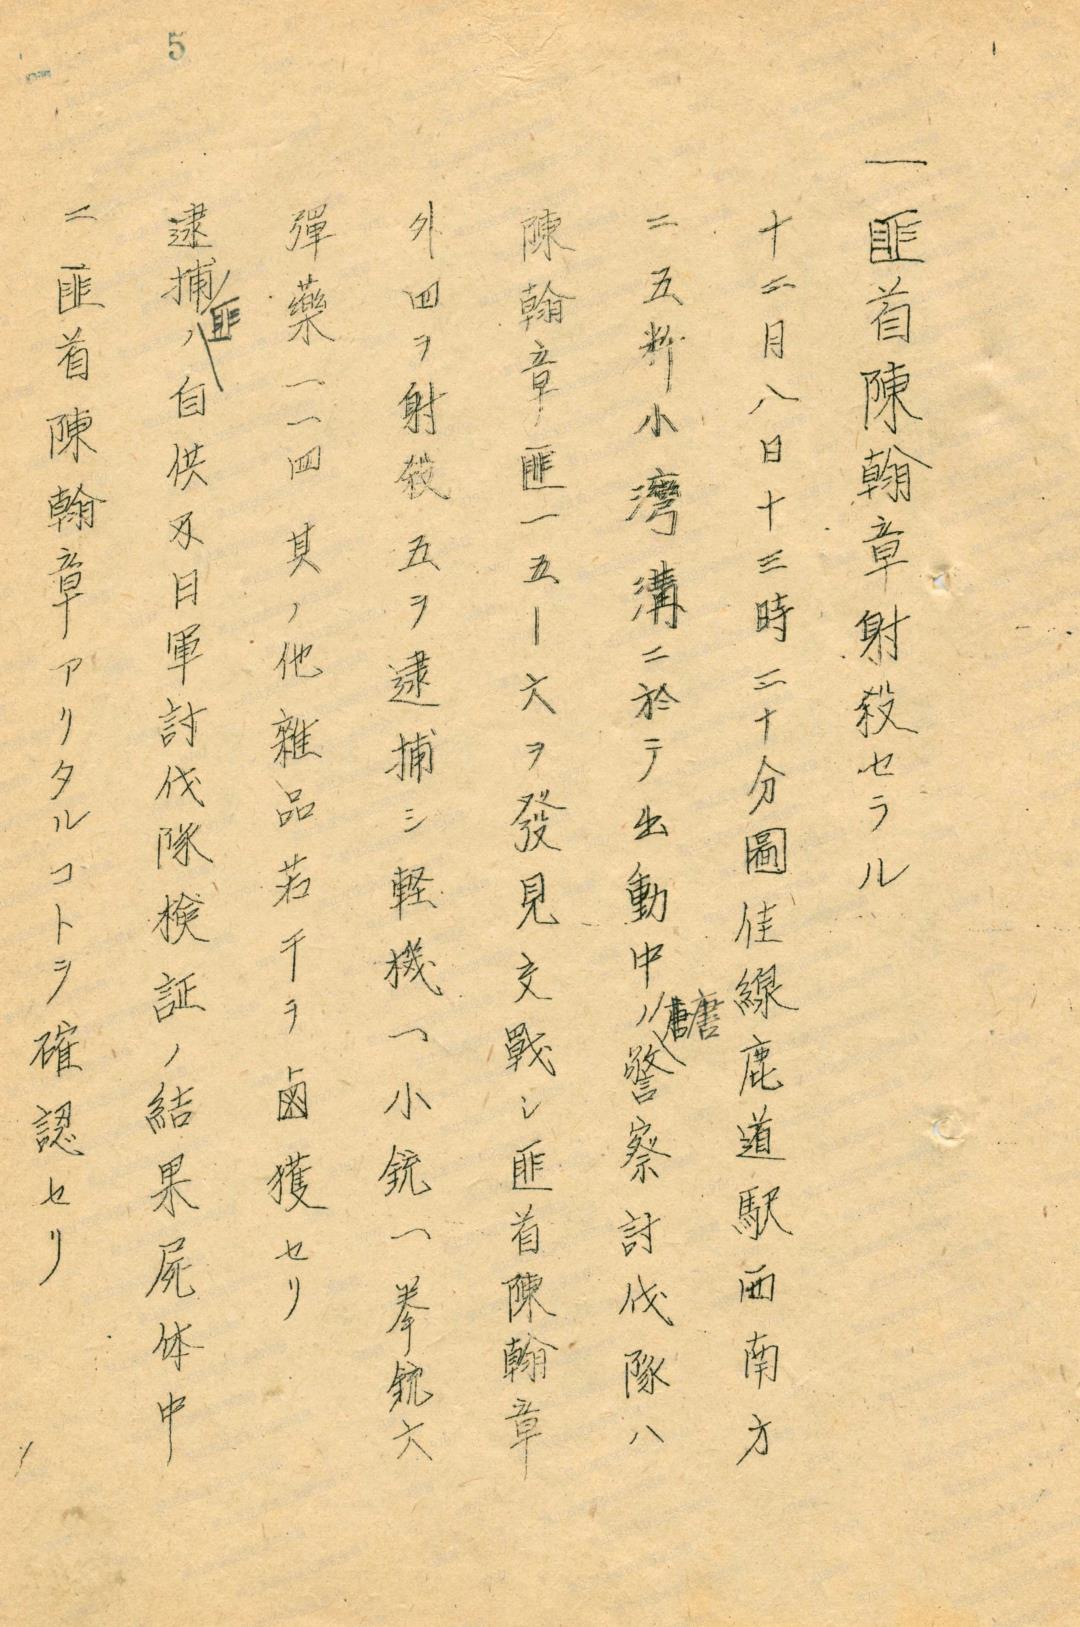 5
一 匪首陳翰章射殺セラル
十二月八日十三時二十分圖佳線鹿道駅西南方
二五粁小灣溝ニ於テ出動中ノ唐警察討伐隊ハ
陳翰章匪一五ー六ヲ發見交戰シ匪首陳翰章
外四ヲ射殺五ヲ逮捕シ軽機一小銃一拳銃六
彈藥一一四其ノ他雜品若干ヲ鹵獲セリ
逮捕匪ノ自供及日軍討伐隊検証ノ結果屍体中
ニ匪首陳翰章アリタルコトヲ確認セリ